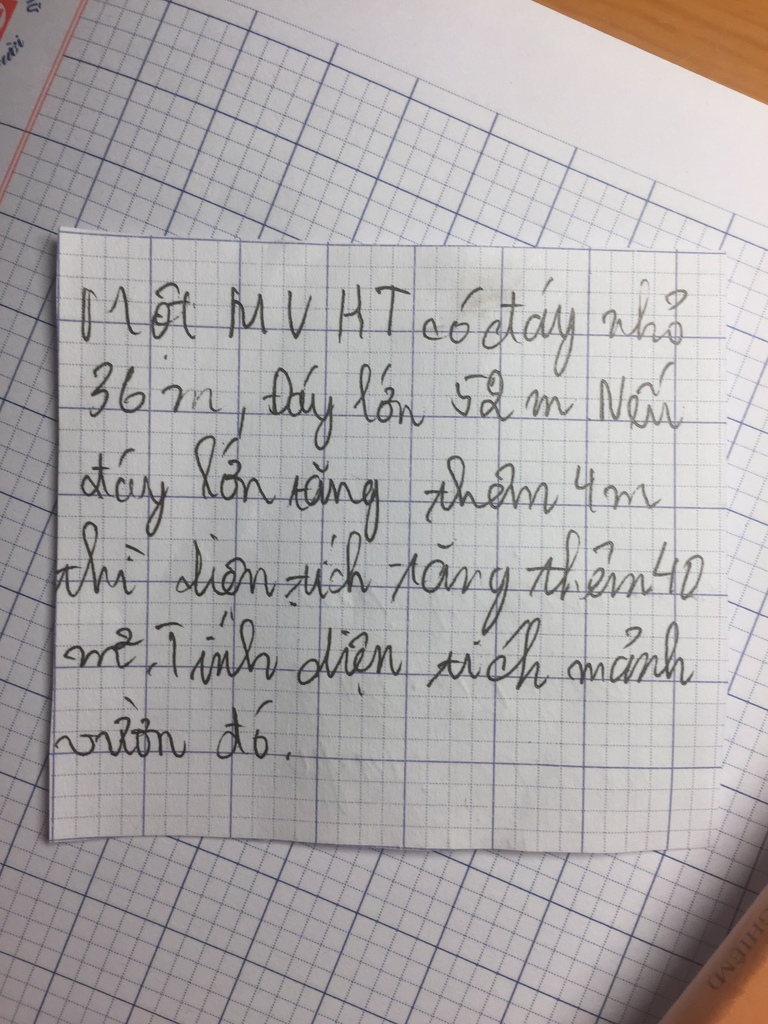 Một MVHT có đáy nhỏ
36 m, Đáy lớn 52 m Nếu
đáy lớn tăng thêm 4m
thì diện tích tăng thêm 40
m². Tính diện tích mảnh
vườn đó.